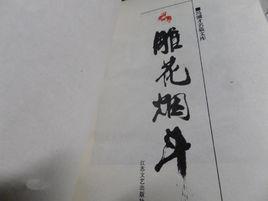 雕花烟斗
江苏文艺出版社